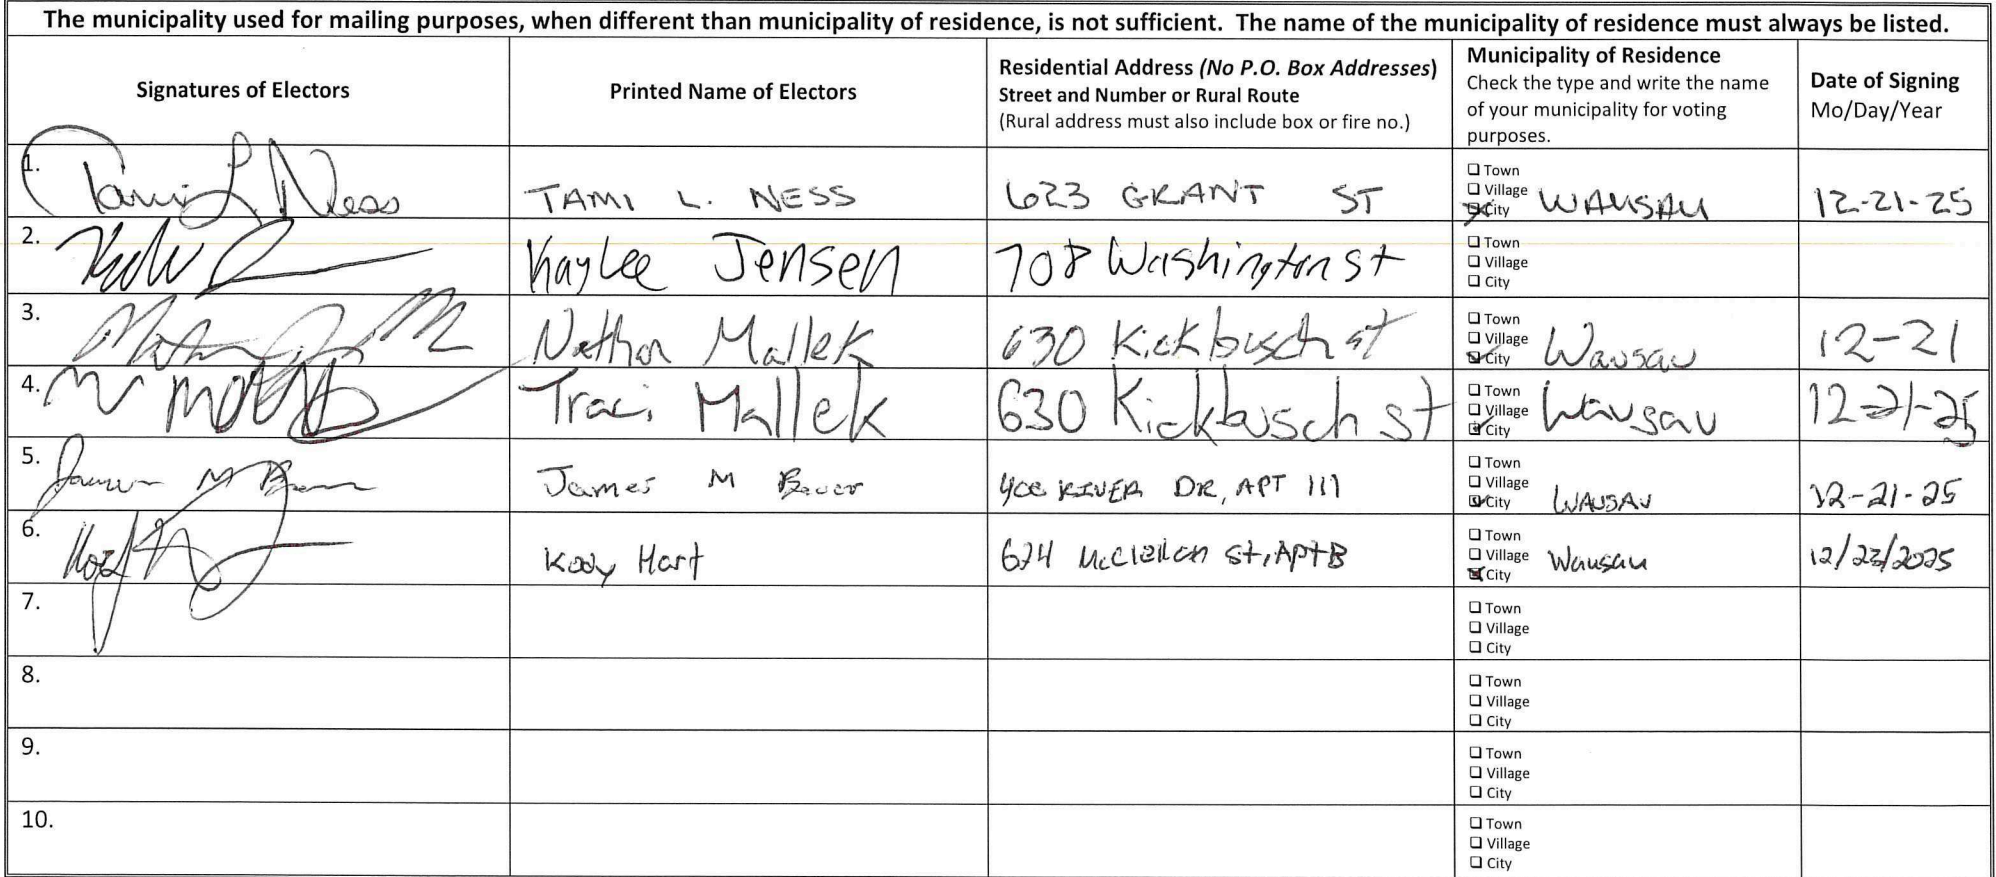 The municipality used for mailing purposes, when different than municipality of residence, is not sufficient. The name of the municipality of residence must always be listed.
Signatures of Electors
Printed Name of Electors
Residential Address (No P.O. Box Addresses)
Street and Number or Rural Route
(Rural address must also include box or fire no.)
Municipality of Residence
Check the type and write the name
of your municipality for voting
purposes.
Date of Signing
Mo/Day/Year
1. Tami L Ness TAMI L. NESS 623 GRANT ST
Town
Village
City
WAUSAU 12-21-25
2. Kaylee Jensen 708 Washington st
Town
Village
City
3. Nathan Mallek 630 Kickbusch st
Town
Village
City
Wausau 12-21
4. Traci Mallek 630 Kickbusch st
Town
Village
City
Wausau 12-21-25
5. James M James M 400 RIVER DR, APT 111
Town
Village
City
WAUSAU 12-21-25
6. Kody Hart 624 McClellan St, Apt B
Town
Village
City
Wausau 12/23/2025
7.
Town
Village
City
8.
Town
Village
City
9.
Town
Village
City
10.
Town
Village
City